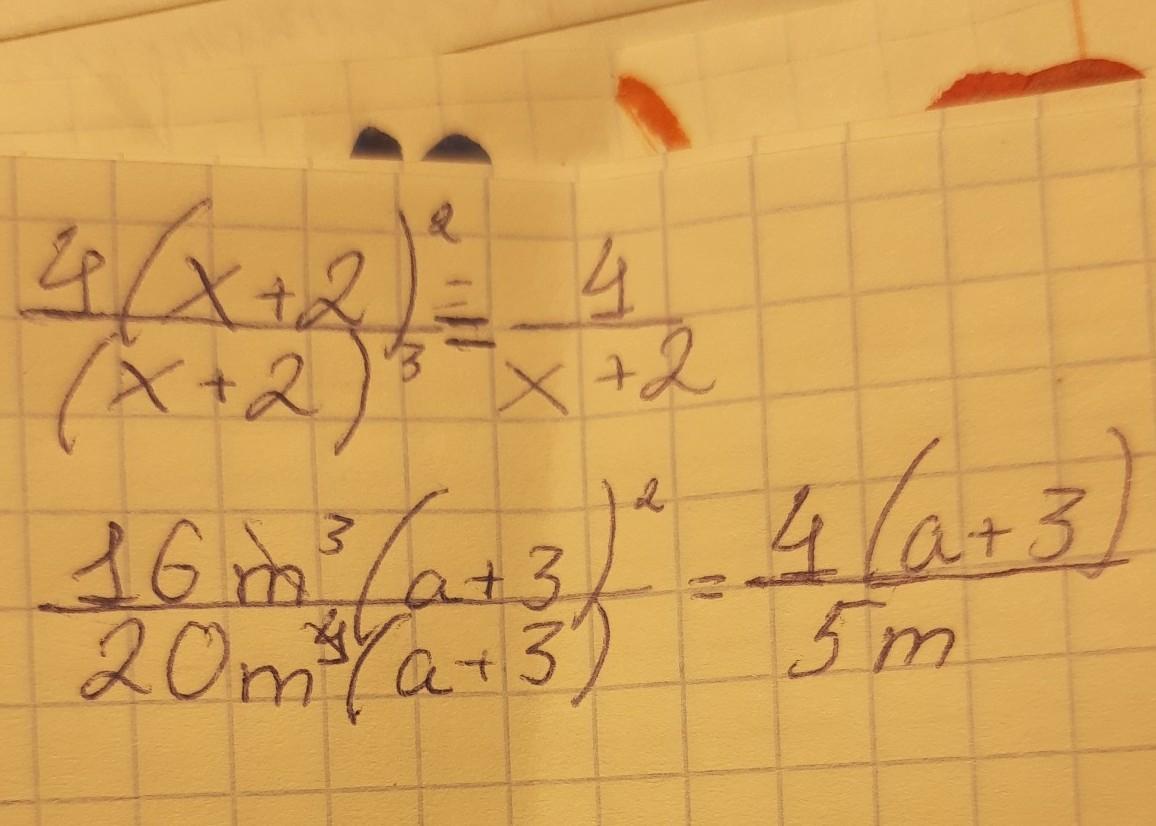 4(x+2)²/(x+2)³ = 4/(x+2)
16m³(a+3)²/20m⁴(a+3) = 4(a+3)/5m